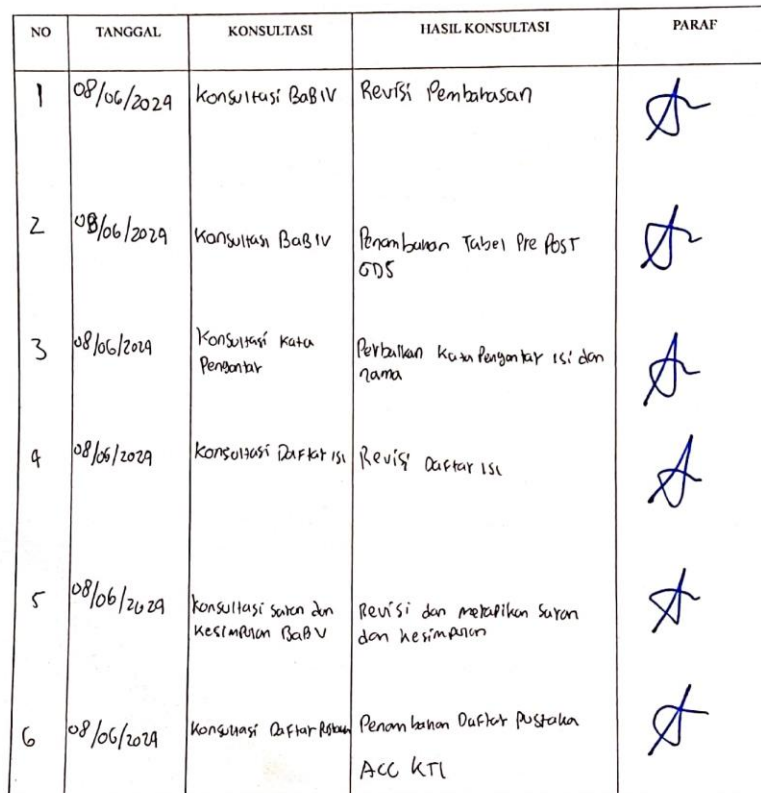 NO TANGGAL KONSULTASI HASIL KONSULTASI PARAF
1 08/06/2024 Konsultasi BaB IV Revisi Pembahasan
2 08/06/2024 Konsultasi BaB IV Penambahan Tabel Pre Post
GDS
3 08/06/2024 Konsultasi Kata Perbaikan Kata Pengantar isi dan
Pengantar nama
4 08/06/2024 Konsultasi Daftar isi Revisi Daftar isi
5 08/06/2024 Konsultasi saran dan Revisi dan merapikan saran
Kesimpulan BaB V dan kesimpulan
6 08/06/2024 Konsultasi Daftar Pustaka Penambahan Daftar pustaka
ACC KTI